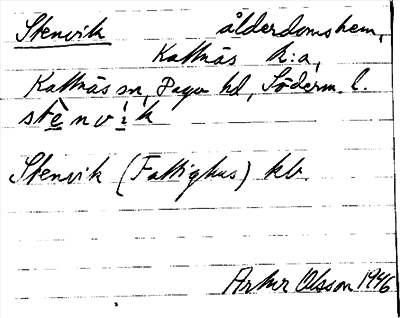 Stenvik ålderdomshem,
Kattnäs k:a,
Kattnäs sn, Daga hd, Söderm. l.
stènvìk
Stenvik (Fattighus) kb.
Artur Olsson 1946